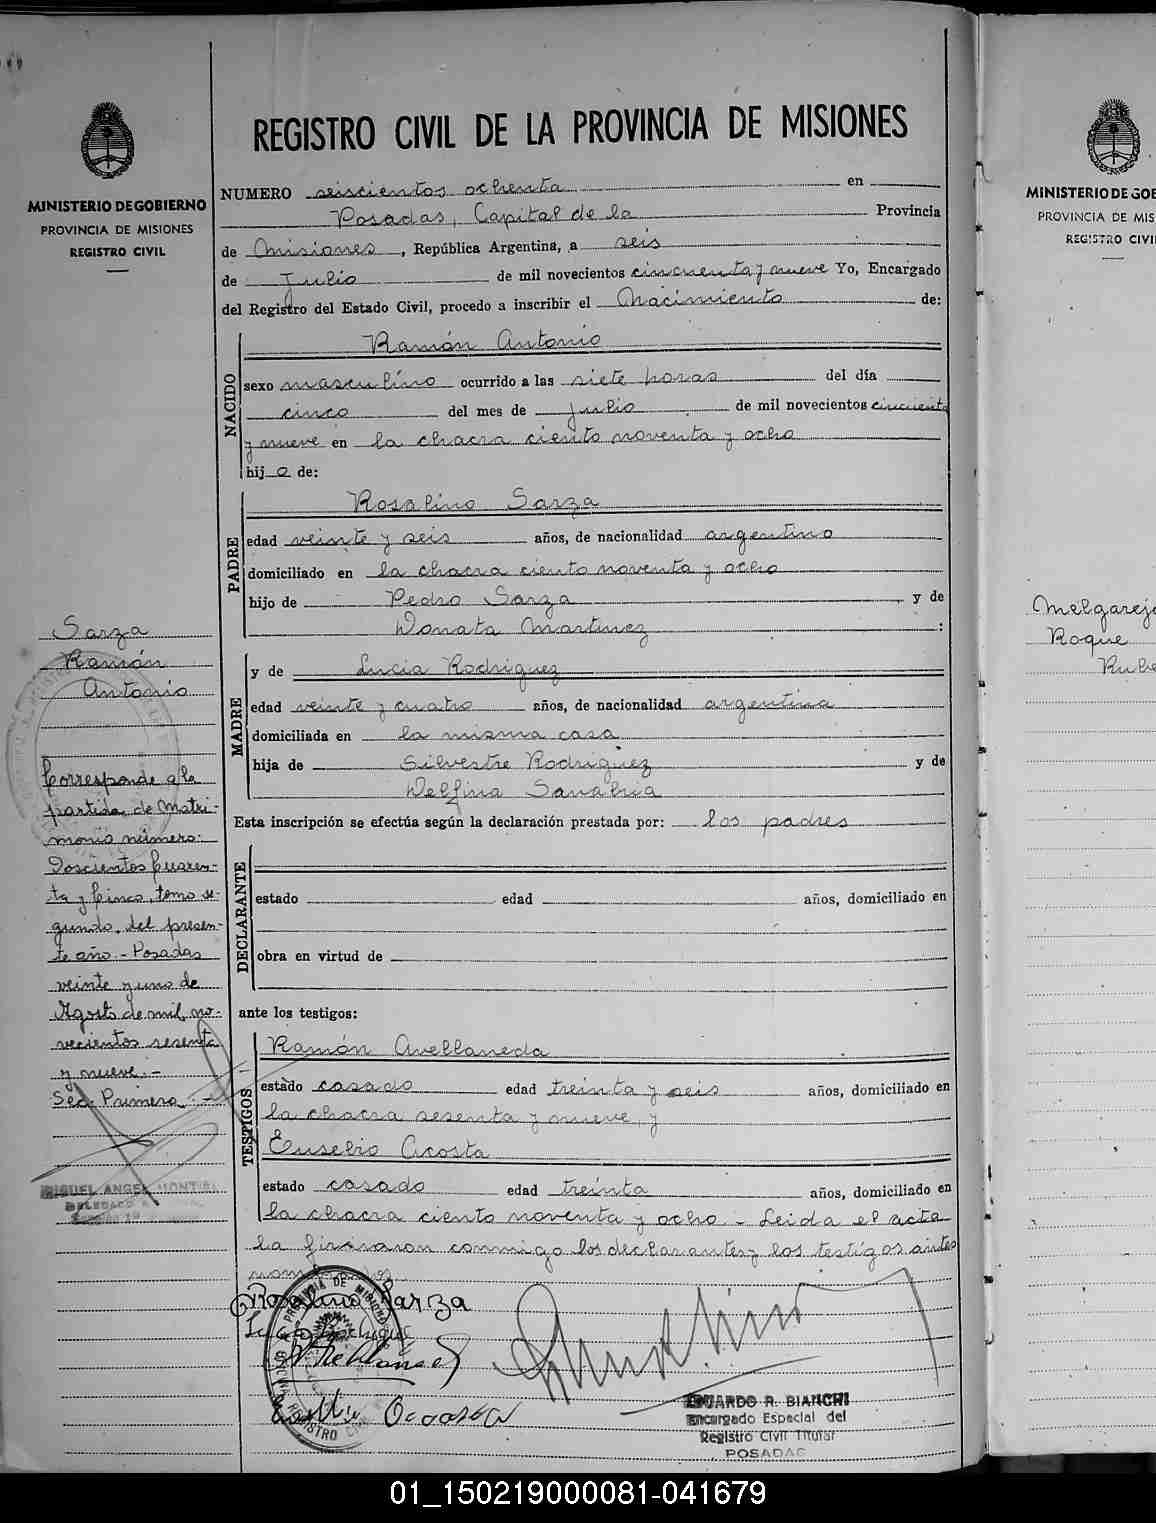 REGISTRO CIVIL DE LA PROVINCIA DE MISIONES
MINISTERIO DE GOBIERNO
PROVINCIA DE MISIONES
REGISTRO CIVIL
Sarza
Ramón
Antonio
Corresponde a la
partida de Matri-
monio número:
Doscientos Cuaren-
ta y Cinco, tomo se-
gundo, del presen-
te año.- Posadas
veinte y uno de
Agosto de mil no-
vecientos sesenta
y nueve.-
Sec. Primera.-
MIGUEL ANGEL
DELEGADO
NUMERO seiscientos ochenta en
Posadas, Capital de la Provincia
de Misiones, República Argentina, a seis
de Julio de mil novecientos cincuenta y nueve Yo, Encargado
del Registro del Estado Civil, procedo a inscribir el Nacimiento de:
NACIDO
Ramón Antonio
sexo masculino ocurrido a las siete horas del día
cinco del mes de julio de mil novecientos cincuenta
y nueve en la chacra ciento noventa y ocho
hijo de:
PADRE
Rosalino Sarza
edad veinte y seis años, de nacionalidad argentino
domiciliado en la chacra ciento noventa y ocho
hijo de Pedro Sarza y de
Donata Martinez :
MADRE
y de Lucia Rodriguez
edad veinte y cuatro años, de nacionalidad argentina
domiciliada en la misma casa
hija de Silvestre Rodriguez y de
Delfina Sanabria
Esta inscripción se efectúa según la declaración prestada por: los padres
DECLARANTE
estado edad años, domiciliado en
obra en virtud de
ante los testigos:
TESTIGOS
Ramón Avellaneda
estado casado edad treinta y seis años, domiciliado en
la chacra sesenta y nueve, y
Eusebio Acosta
estado casado edad treinta años, domiciliado en
la chacra ciento noventa y ocho.- Leida el acta
la firmaron conmigo los declarantes y los testigos antes
Rosalino Sarza
EDUARDO R. BIANCHI
Encargado Especial del
Registro Civil Titular
POSADAS
MINISTERIO DE GOB
PROVINCIA DE MIS
REGISTRO CIVI
Melgarejo
Roque
Rube
01_150219000081-041679